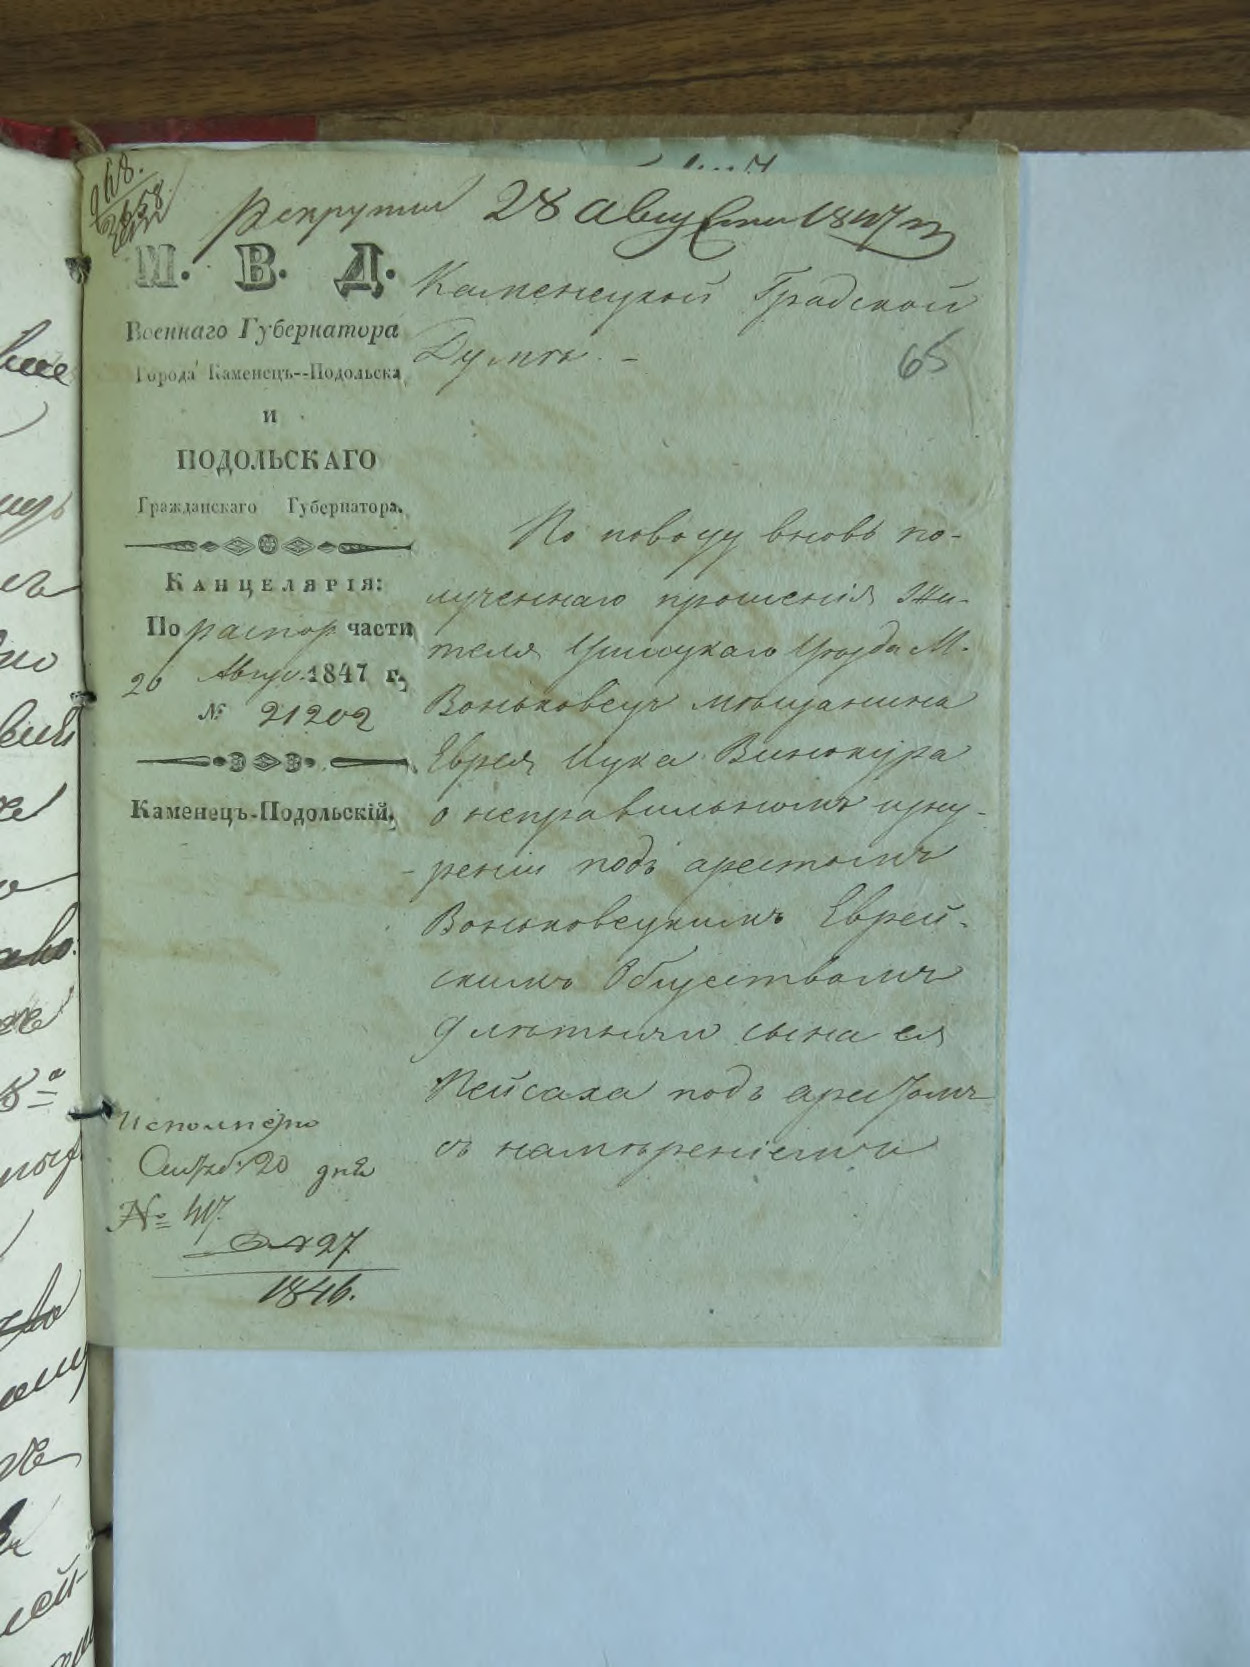 268.
2658
рекрутск 28 августа 1847 г
М. В. Д.
Военнаго Губернатора
Города Каменецъ--Подольска
и
ПОДОЛЬСКАГО
Гражданскаго Губернатора.
Канцелярія:
По распор. части
20 Авгус. 1847 г.
№ 21202
Каменецъ-Подольскій.
Каменецкой Градской
Думѣ. -
65
По поводу вновь по-
лученнаго прошенія Жи-
теля Ушицкаго Уѣзда М.
Воньковецъ мѣщанина
Еврея Ицка Винокура
о неправильномъ изну-
реніи подъ арестомъ
Воньковецкимъ Еврей-
скимъ Обществомъ
9 лѣтняго сына ея
Пейсаха подъ арестомъ
съ намѣреніемъ
Исполнено
20 дня
№ 417.
27
1846.